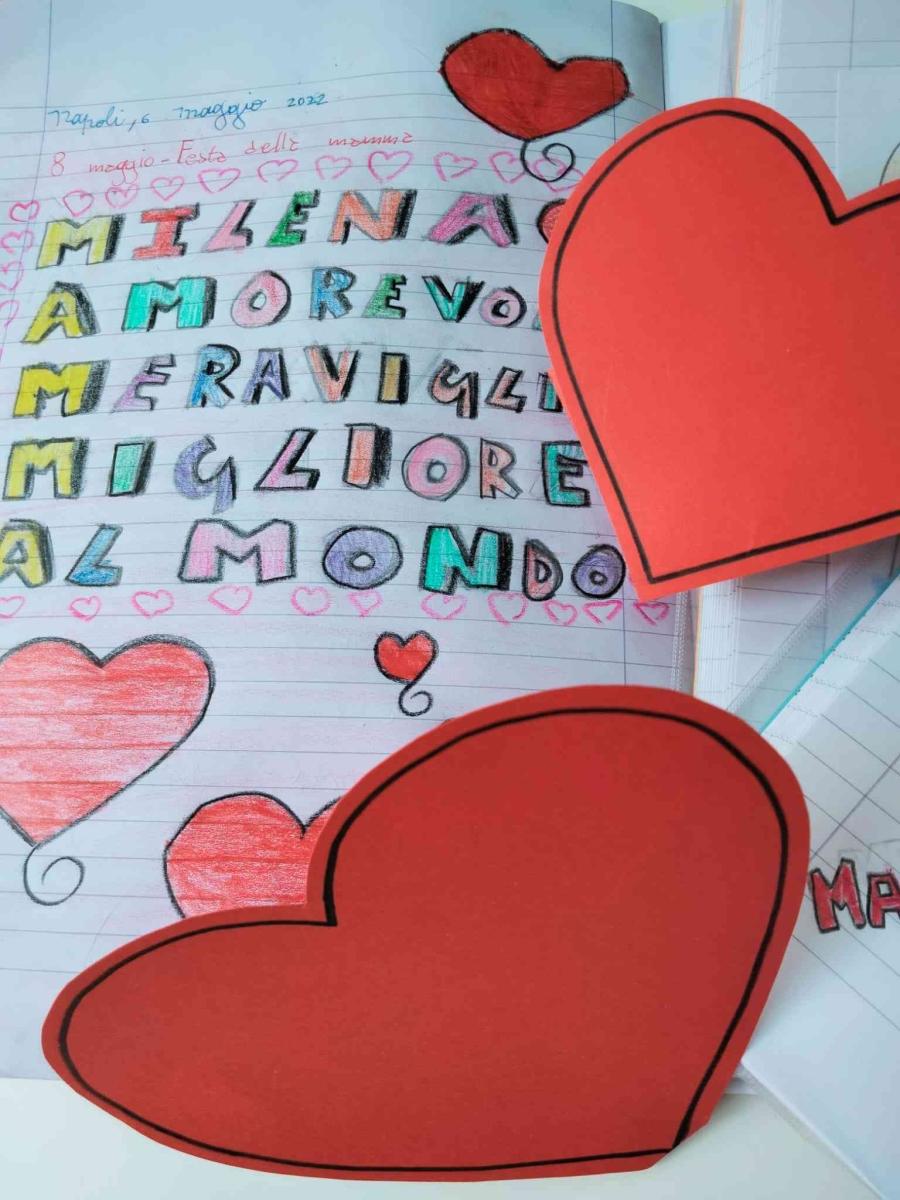 Napoli, 6 maggio 2022
8 maggio - Festa della mamma
MILENA
AMOREVO
MERAVIGLI
MIGLIORE
AL MONDO
MA